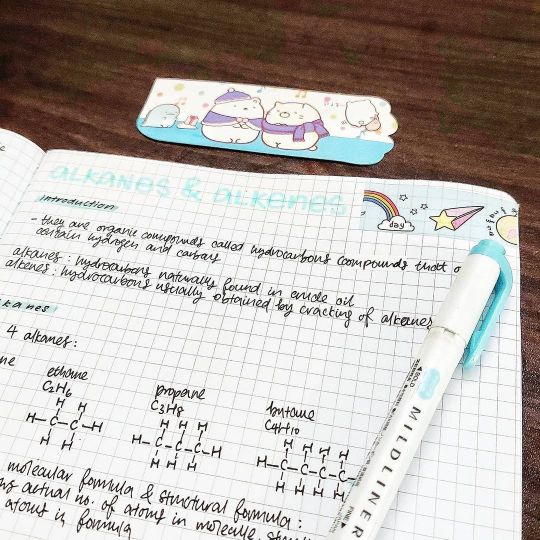 ALKANES & ALKENES
day
introduction
- they are organic compounds called hydrocarbons (compounds that
contain hydrogen and carbon
alkanes : hydrocarbons naturally found in crude oil
alkenes : hydrocarbons usually obtained by cracking of alkanes
kanes
4 alkanes :
ne
ethane
propane
butane
C2H6
C3H8
C4H10
H H
H-C-C-H
H H
H H H
H-C-C-C-H
H H H
H H H H
H-C-C-C-C-
H H H
molecular formula & structural formula :
actual no. of atoms in molecule,
atoms in formula
MILDLINER